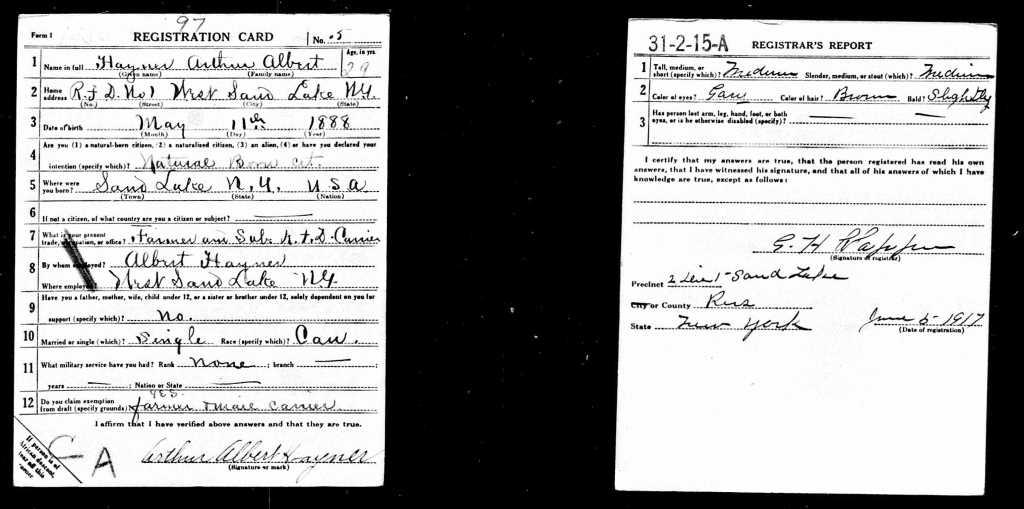 97
Form 1 REGISTRATION CARD No. 5
1 Name in full Hayner Arthur Albert Age, in yrs. 29
(Given name) (Family name)
2 Home address R.F.D. No 1 West Sand Lake NY.
(No.) (Street) (City) (State)
3 Date of birth May 11th 1888
(Month) (Day) (Year)
Are you (1) a natural-born citizen, (2) a naturalized citizen, (3) an alien, (4) or have you declared your
4 intention (specify which)? Natural Born cit.
5 Where were you born? Sand Lake N.Y. USA
(Town) (State) (Nation)
6 If not a citizen, of what country are you a citizen or subject?
7 What is your present trade, occupation, or office? Farmer am Sub. R.F.D. Carrier
8 By whom employed? Albert Hayner
Where employed? West Sand Lake NY.
Have you a father, mother, wife, child under 12, or a sister or brother under 12, solely dependent on you for
9 support (specify which)? No.
10 Married or single (which)? Single Race (specify which)? Cau.
11 What military service have you had? Rank None ; branch
years ; Nation or State
yes.
12 Do you claim exemption from draft (specify grounds)? farmer mail carrier
I affirm that I have verified above answers and that they are true.
Arthur Albert Hayner
(Signature or mark)
If person is of
African descent,
tear off this
corner
C A
31-2-15-A REGISTRAR'S REPORT
1 Tall, medium, or short (specify which)? Medium Slender, medium, or stout (which)? Medium
2 Color of eyes? Gary Color of hair? Brown Bald? Slightly
3 Has person lost arm, leg, hand, foot, or both eyes, or is he otherwise disabled (specify)?
I certify that my answers are true, that the person registered has read his own
answers, that I have witnessed his signature, and that all of his answers of which I have
knowledge are true, except as follows:
E. H.
(Signature of registrar)
Precinct 2 Sand Lake
City or County Rens
State New York June 5-1917
(Date of registration)